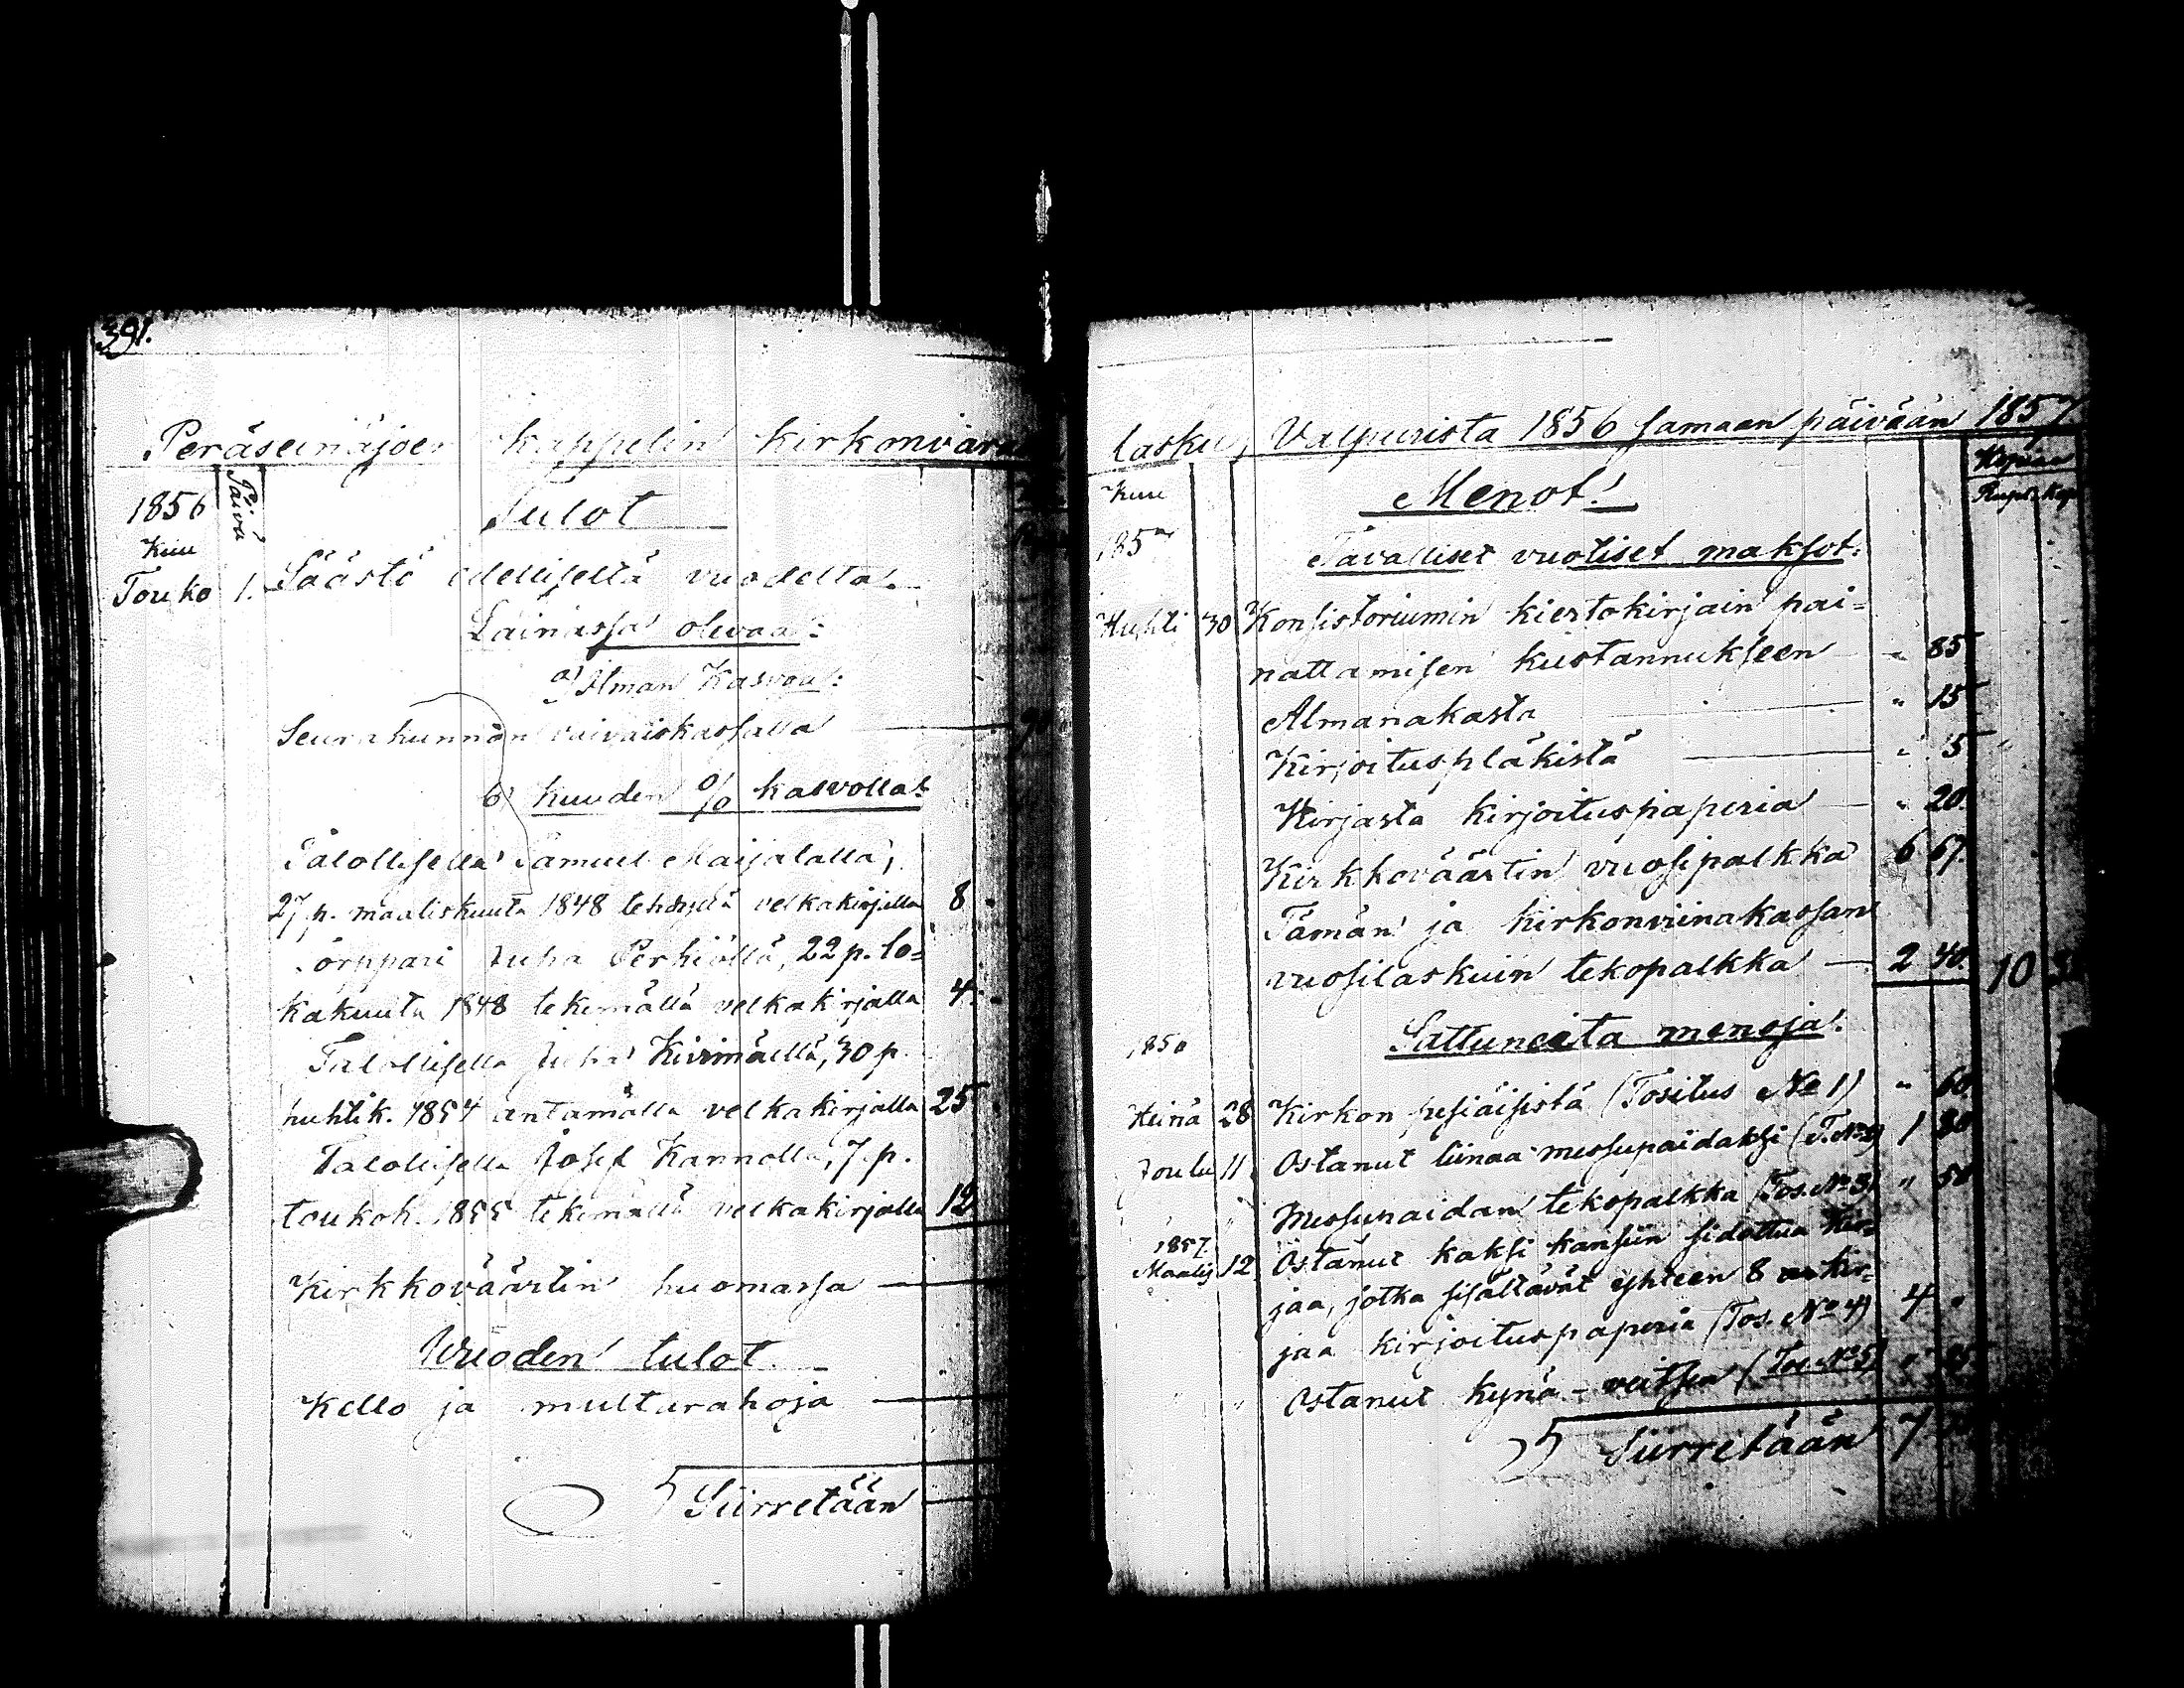 391.
Peräseinäjoen kappelin kirkonvaran
1856 Päivä
Kuu
Tulot
Touko 1. Säästö edelliseltä vuodelta.
Lainassa olevaa:
a) Ilman Kasvoa:
Seurakunnan vaivaiskassalla
b) kuuden % kasvolla:
Talollisella Samuel Maijalalla,
27 p. maaliskuuta 1848 tehdyllä velkakirjalla 8 "
Torppari Juha Perhiöllä, 22 p. lo=
kakuuta 1848 tekemällä velkakirjalla 4 "
Talollisella Juha Kivimäellä, 30 p.
huhtik. 1854 antamalla velkakirjalla 25
Talollisella Josef Kannolla, 7 p.
toukok. 1855 tekemällä velkakirjalla 12
Kirkkoväärtin huomassa
Vuoden tulot
Kello ja multarahoja
Siirretään
lasku, Valpurista 1856 samaan päivään 1857
Kuu Hopiaa
Menot! Rupl. Kop.
1857
Tavalliset vuotiset maksot:
Huhti 30 Konsistoriumin kiertokirjain pai=
nattamisen kustannukseen " 85
Almanakasta " 15
Kirjoituspläkistä " 5
Kirjasta kirjoituspaperia " 20.
Kirkkoväärtin vuosipalkka 6 67.
Tämän ja kirkonviinakassan
vuosilaskuin tekopalkka 2 40. 10
Sattuneita menoja:
1856
Heinä 28 Kirkon pesiäisistä (Tositus No 1) " 60.
Joulu 11. Ostanut liinaa messupaidaksi (T. No 2) 1 80
" " Messupaidan tekopalkka (Tos. No 3) " 50
1857.
Maalis 12 Ostanut kaksi kansiin sidottua kir=
jaa, jotka sisältävät yhteen 8 kir=
jaa kirjoituspaperia (Tos. No 4) 4 "
" Ostanut kynä-veitsen (Tos. No 5) "
Siirretään 7